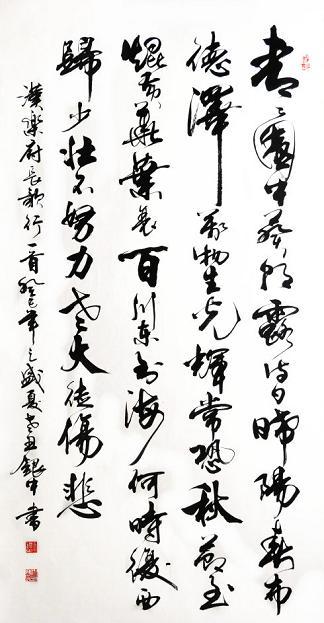 青青園中葵朝露待日晞陽春布
德澤萬物生光輝常恐秋節至
焜黃華葉衰百川東到海何時復西
歸少壯不努力老大徒傷悲
漢樂府長歌行一首癸巳年之盛夏銀中書